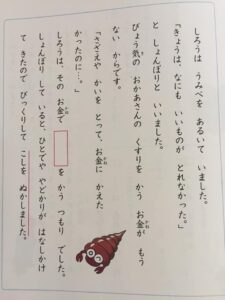 しろうは うみべを あるいて いました。
「きょうは、なにも いいものが とれなかった。」
と しょんぼりと いいました。
びょう気の おかあさんの くすりを かう お金が もう
ない からです。
「さざえや かいを とって、お金に かえた
かったのに…。」
しろうは、その お金で を かう つもり でした。
しょんぼり して いると、ひとでや やどかりが はなしかけ
て きたので びっくりして こしを ぬかしました。